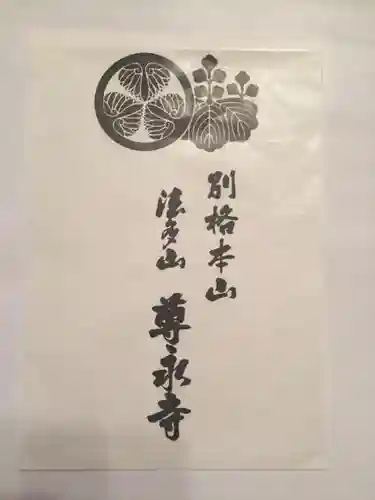 別格本山
法多山
尊永寺